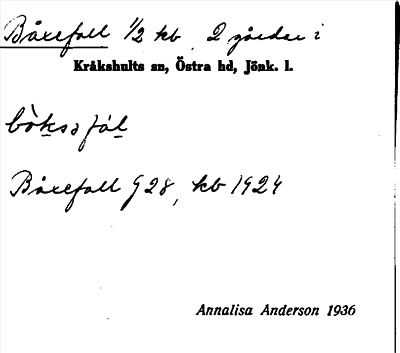 Båxefall 1/2 kb 2 gårdar i
Kråkshults sn, Östra hd, Jönk. l.
bò̀ksafál
Båxefall G 28, kb 1924
Annalisa Anderson 1936